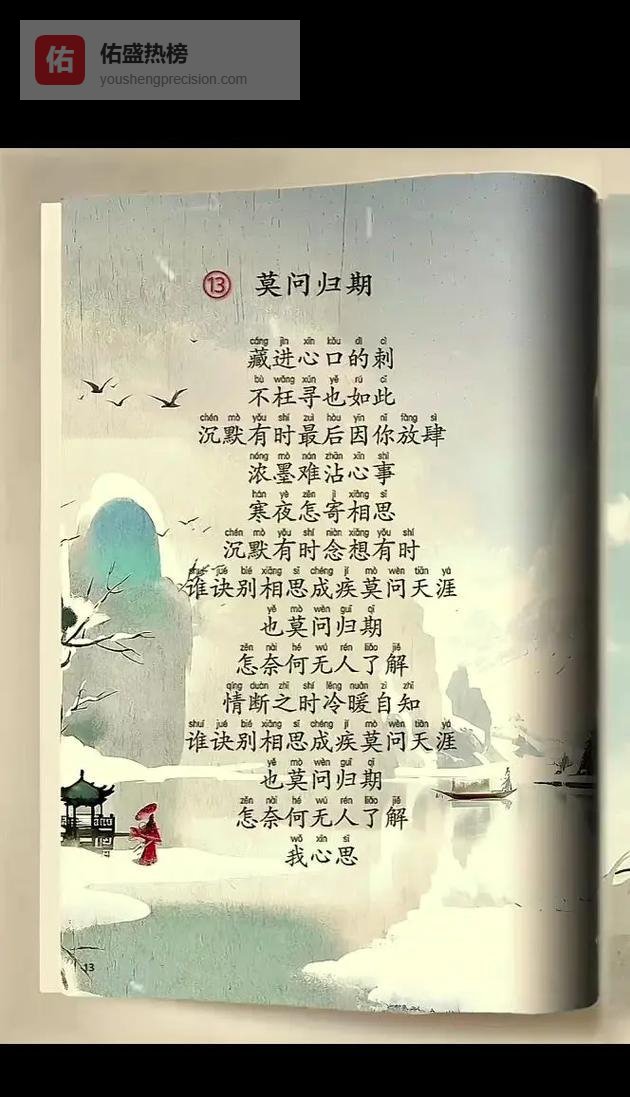 佑
佑盛热榜
youshengprecision.com
⑬ 莫问归期
cáng jìn xīn kǒu dì cì
藏进心口的刺
bù wǎng xún yě rú cǐ
不枉寻也如此
chén mò yǒu shí zuì hòu yīn nǐ fàng sì
沉默有时最后因你放肆
nóng mò nán zhān xīn shì
浓墨难沾心事
hán yè zěn jì xiāng sī
寒夜怎寄相思
chén mò yǒu shí niàn xiǎng yǒu shí
沉默有时念想有时
shuí jué bié xiāng sī chéng jí mò wèn tiān yá
谁诀别相思成疾莫问天涯
yě mò wèn guī qī
也莫问归期
zěn nài hé wú rén liǎo jiě
怎奈何无人了解
qíng duàn zhī shí lěng nuǎn zì zhī
情断之时冷暖自知
shuí jué bié xiāng sī chéng jí mò wèn tiān yá
谁诀别相思成疾莫问天涯
yě mò wèn guī qī
也莫问归期
zěn nài hé wú rén liǎo jiě
怎奈何无人了解
wǒ xīn sī
我心思
13